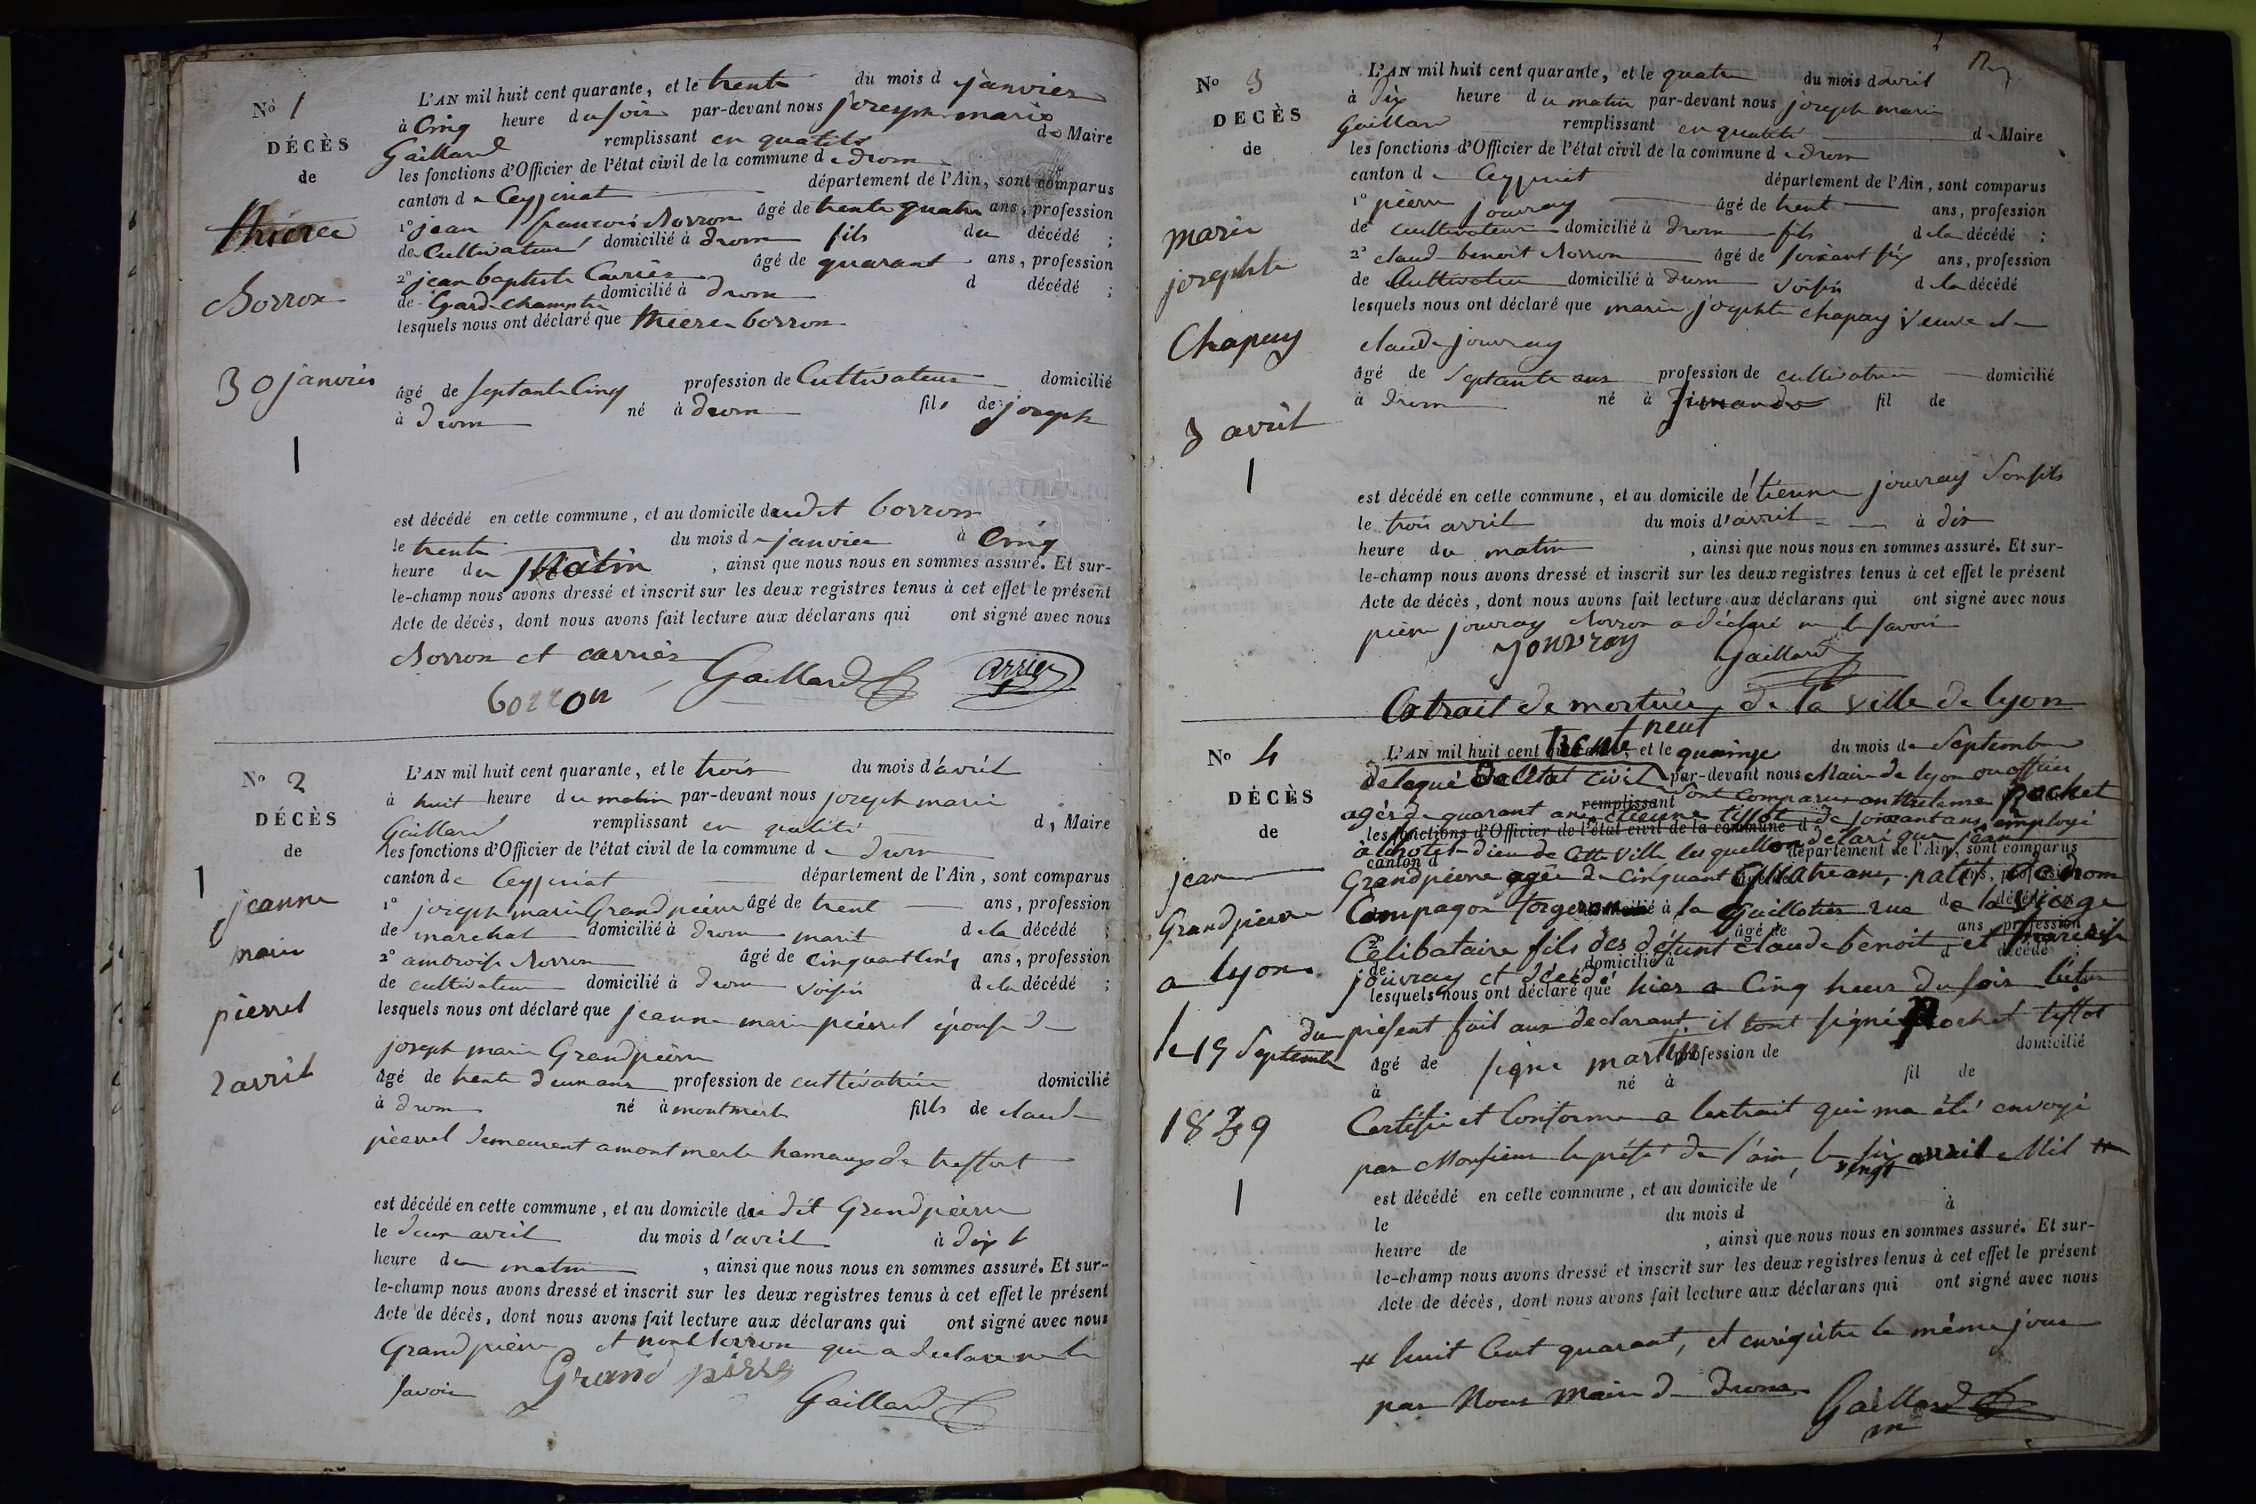 No 1
DÉCÈS
de
thierce
Borron
30 janvier
1
L'AN mil huit cent quarante, et le trente du mois d janvier
à Cinq heure du soir par-devant nous joseph marie
Gaillard remplissant en qualité de Maire
les fonctions d'Officier de l'état civil de la commune de drom
canton de Ceyzeriat département de l'Ain, sont comparus
1o jean francois Borron âgé de trente quatre ans, profession
de Cultivateur domicilié à drom fils du décédé ;
2o jean baptiste Carrier âgé de quarant ans, profession
de Gard champtre domicilié à drom d décédé ;
lesquels nous ont déclaré que thierce borron
âgé de septante Cinq profession de Cultivateur domicilié
à drom né à drom fils de joseph
est décédé en cette commune, et au domicile dudit borron
le trente du mois de janvier à Cinq
heure du Matin , ainsi que nous nous en sommes assuré. Et sur-
le-champ nous avons dressé et inscrit sur les deux registres tenus à cet effet le présent
Acte de décès, dont nous avons fait lecture aux déclarans qui ont signé avec nous
Borron et carrier
borron Gaillard Carrier
No 2
DÉCÈS
de
1
jeanne
marie
pierrel
2 avril
L'AN mil huit cent quarante, et le trois du mois d'avril
à huit heure du matin par-devant nous joseph marie
Gaillard remplissant en qualité de Maire
les fonctions d'Officier de l'état civil de la commune de drom
canton de Ceyzeriat département de l'Ain, sont comparus
1o joseph marie Grandpierre âgé de trent ans, profession
de marechal domicilié à drom marit de la décédé ;
2o ambroise Borron âgé de cinquant cinq ans, profession
de cultivateur domicilié à drom voisin de la décédé ;
lesquels nous ont déclaré que jeanne marie pierrel épouse de
joseph marie Grandpierre
âgé de trente deux ans profession de cultivatrice domicilié
à drom né à montmerle fille de claude
pierrel demeurent a montmerle hameaux de treffort
est décédé en cette commune, et au domicile du dit Grandpierre
le deux avril du mois d'avril à dix
heure du matin , ainsi que nous nous en sommes assuré. Et sur-
le-champ nous avons dressé et inscrit sur les deux registres tenus à cet effet le présent
Acte de décès, dont nous avons fait lecture aux déclarans qui ont signé avec nous
Grandpierre et non borron qui a declaré ne le
savoir Grand pierre
Gaillard
No 3
DÉCÈS
de
marie
josephte
Chapuy
3 avril
1
L'AN mil huit cent quarante, et le quatre du mois d'avril
à dix heure du matin par-devant nous joseph marie
Gaillard remplissant en qualité de Maire
les fonctions d'Officier de l'état civil de la commune de drom
canton de Ceyzeriat département de l'Ain, sont comparus
1o pierre jouvray âgé de trent ans, profession
de cultivateur domicilié à drom fils de la décédé ;
2o claud benoit Borron âgé de soixant six ans, profession
de Cultivateur domicilié à drom voisin de la décédé
lesquels nous ont déclaré que marie josephte chapuy veuve de
claude jouvray
âgé de septante ans profession de cultivatrice domicilié
à drom né à fil de
est décédé en cette commune, et au domicile d'étienne jouvray son fils
le trois avril du mois d'avril à dix
heure du matin , ainsi que nous nous en sommes assuré. Et sur-
le-champ nous avons dressé et inscrit sur les deux registres tenus à cet effet le présent
Acte de décès, dont nous avons fait lecture aux déclarans qui ont signé avec nous
pierre jouvray Borron a déclaré ne le savoir
jouvray Gaillard
Extrait de mortuère de la ville de lyon
No 4
DÉCÈS
de
jean
Grandpierre
a lyon
le 15 Septembre
1839
1
L'AN mil huit cent trente neuf, et le quainze du mois de Septembre
delegué de l'Etat civil par-devant nous Maire de lyon ou officier
remplissant sont comparus anthelme Pochet
agés de quarant ans etienne tissot de soixant ans, employé
les fonctions d'Officier de l'état civil de la commune d
à l'hotel-dieu de Cette Ville les quels ont declaré que jean
canton d département de l'Ain, sont comparus
Grandpierre agée de cinquant quatre ans, natif de drom
Compagon forgeron à la Guillotier rue de la Vierge
Célibataire fils des défunt claude benoit et
jouvray et décédé
lesquels nous ont déclaré que hier a Cinq heur du soir lectur
du présent fait aux declarant il sont signé Pochet tissot
âgé de signé martin profession de domicilié
à né à fil de
Certifié et Conforme a lextrait qui ma été envoyé
par Monsieur le préfet de l'ain, le vingt six avril Mil #
est décédé en cette commune, et au domicile de
le du mois d à
heure de , ainsi que nous nous en sommes assuré. Et sur-
le-champ nous avons dressé et inscrit sur les deux registres tenus à cet effet le présent
Acte de décès, dont nous avons fait lecture aux déclarans qui ont signé avec nous
# huit Cent quarant, et enrégitre le même jour
par Nous Maire de Drom Gaillard
m